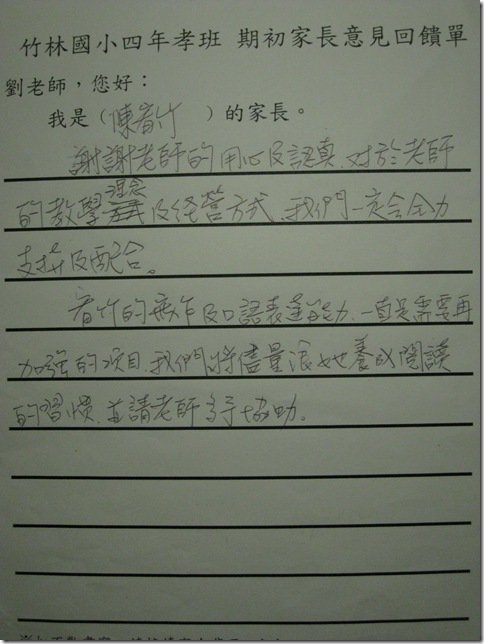 竹林國小四年孝班 期初家長意見回饋單
劉老師，您好：
我是（陳宥竹）的家長。
謝謝老師的用心及認真，对於老師
的教學理念及经营方式，我們一定会全力
支持及配合。
宥竹的寫作及口語表達能力，一直是需要再
加強的项目，我們將儘量讓她養成閱讀
的習惯，並請老師多予協助。